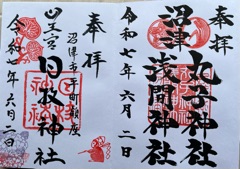 奉拝
丸子神社
沼津
浅間神社
令和七年六月二日
奉拝
沼津市
日枝神社
令和七年六月二日